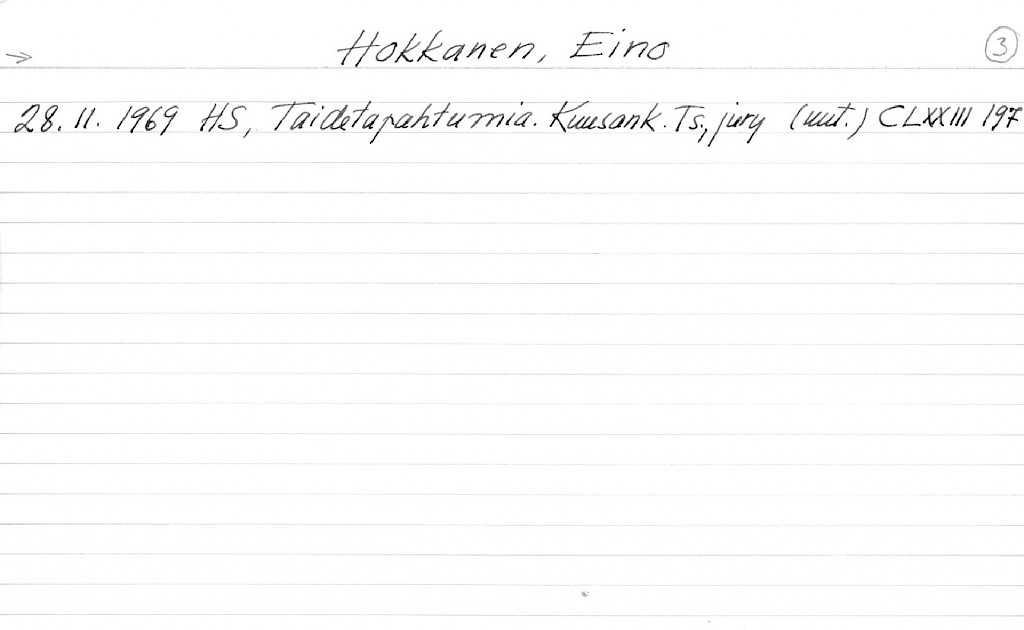 → Hokkanen, Eino 3
28.11.1969 HS, Taidetapahtumia. Kuusank. Ts., jury (uut.) CLXXIII 197